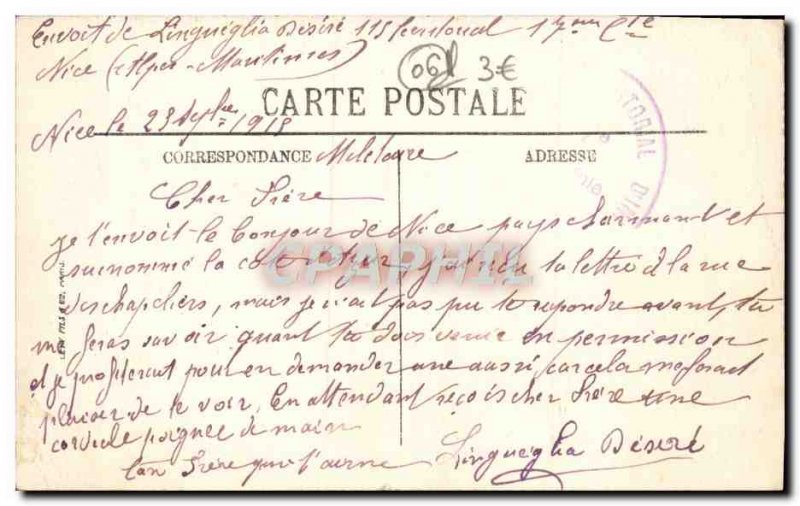 Envoit de Linguéglia Désiré 115 territorial 1 7ème Cie
Nice (Alpes-Maritimes)
06 3€
CARTE POSTALE
Nice le 23 Sepbre 1915
CORRESPONDANCE Militaire ADRESSE
TORIAL D'I
Cher Frère
je t'envoit le bonjour de Nice pays charmant et
surnommé la cote d'azur j'ai reçu ta lettre à la rue
des chapeliers, mais je n'ai pas pu te repondre avant, tu
me feras savoir quant tu dois venir en permission
et je profiterait pour en demander une aussi, car cela me ferait
plaisir de te voir, En attendant reçois cher Frère une
cordiale poignée de main
ton Frère qui t'aime Linguéglia Désiré
LEVY FILS & CO, PARIS
CPAPHIL